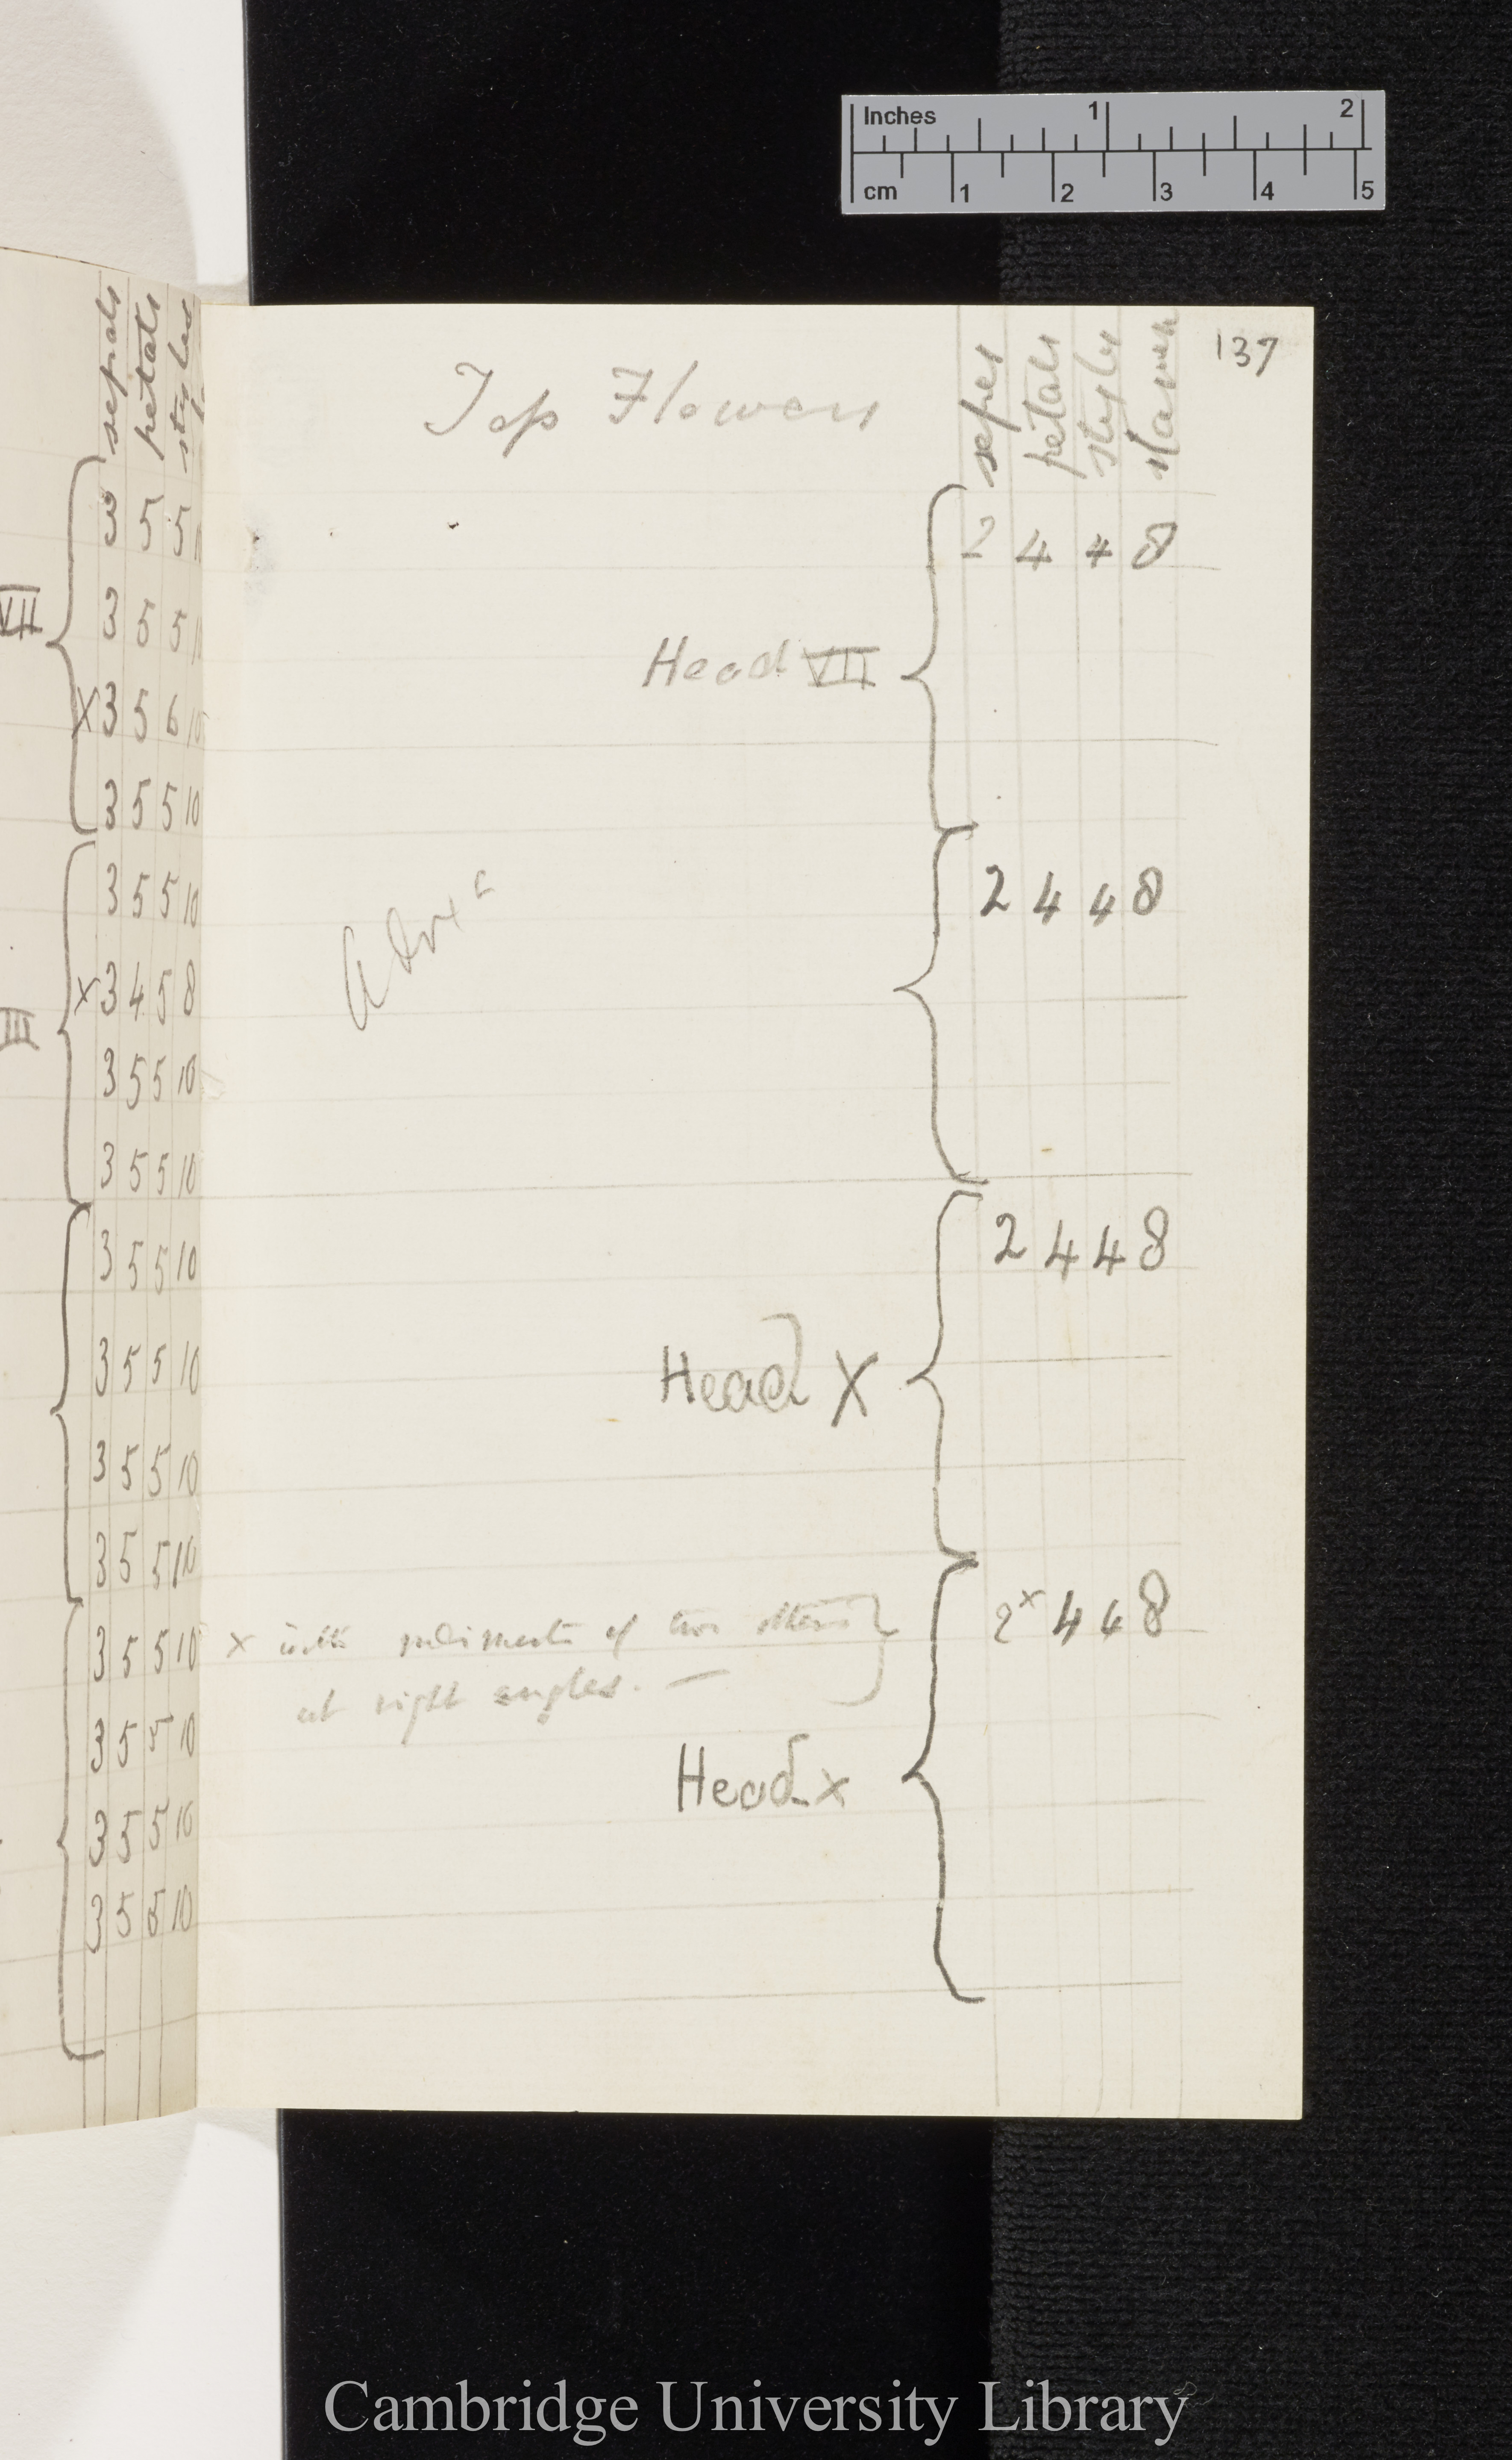 Inches 1 2
cm 1 2 3 4 5
137
sepals petals styles
VII
3 5 5
3 5 5
x 3 5 6 10
3 5 5 10
3 5 5 10
III
x 3 4 5 8
3 5 5 10
3 5 5 10
3 5 5 10
3 5 5 10
3 5 5 10
3 5 5 10
3 5 5 10
3 5 5 10
3 5 5 10
3 5 5 10
Top Flowers
petals styles
2 4 4 8
Head VII
2 4 4 8
Adoxa
2 4 4 8
Head X
2x 4 4 8
x with rudiments of two others
at right angles. —
Head x
Cambridge University Library